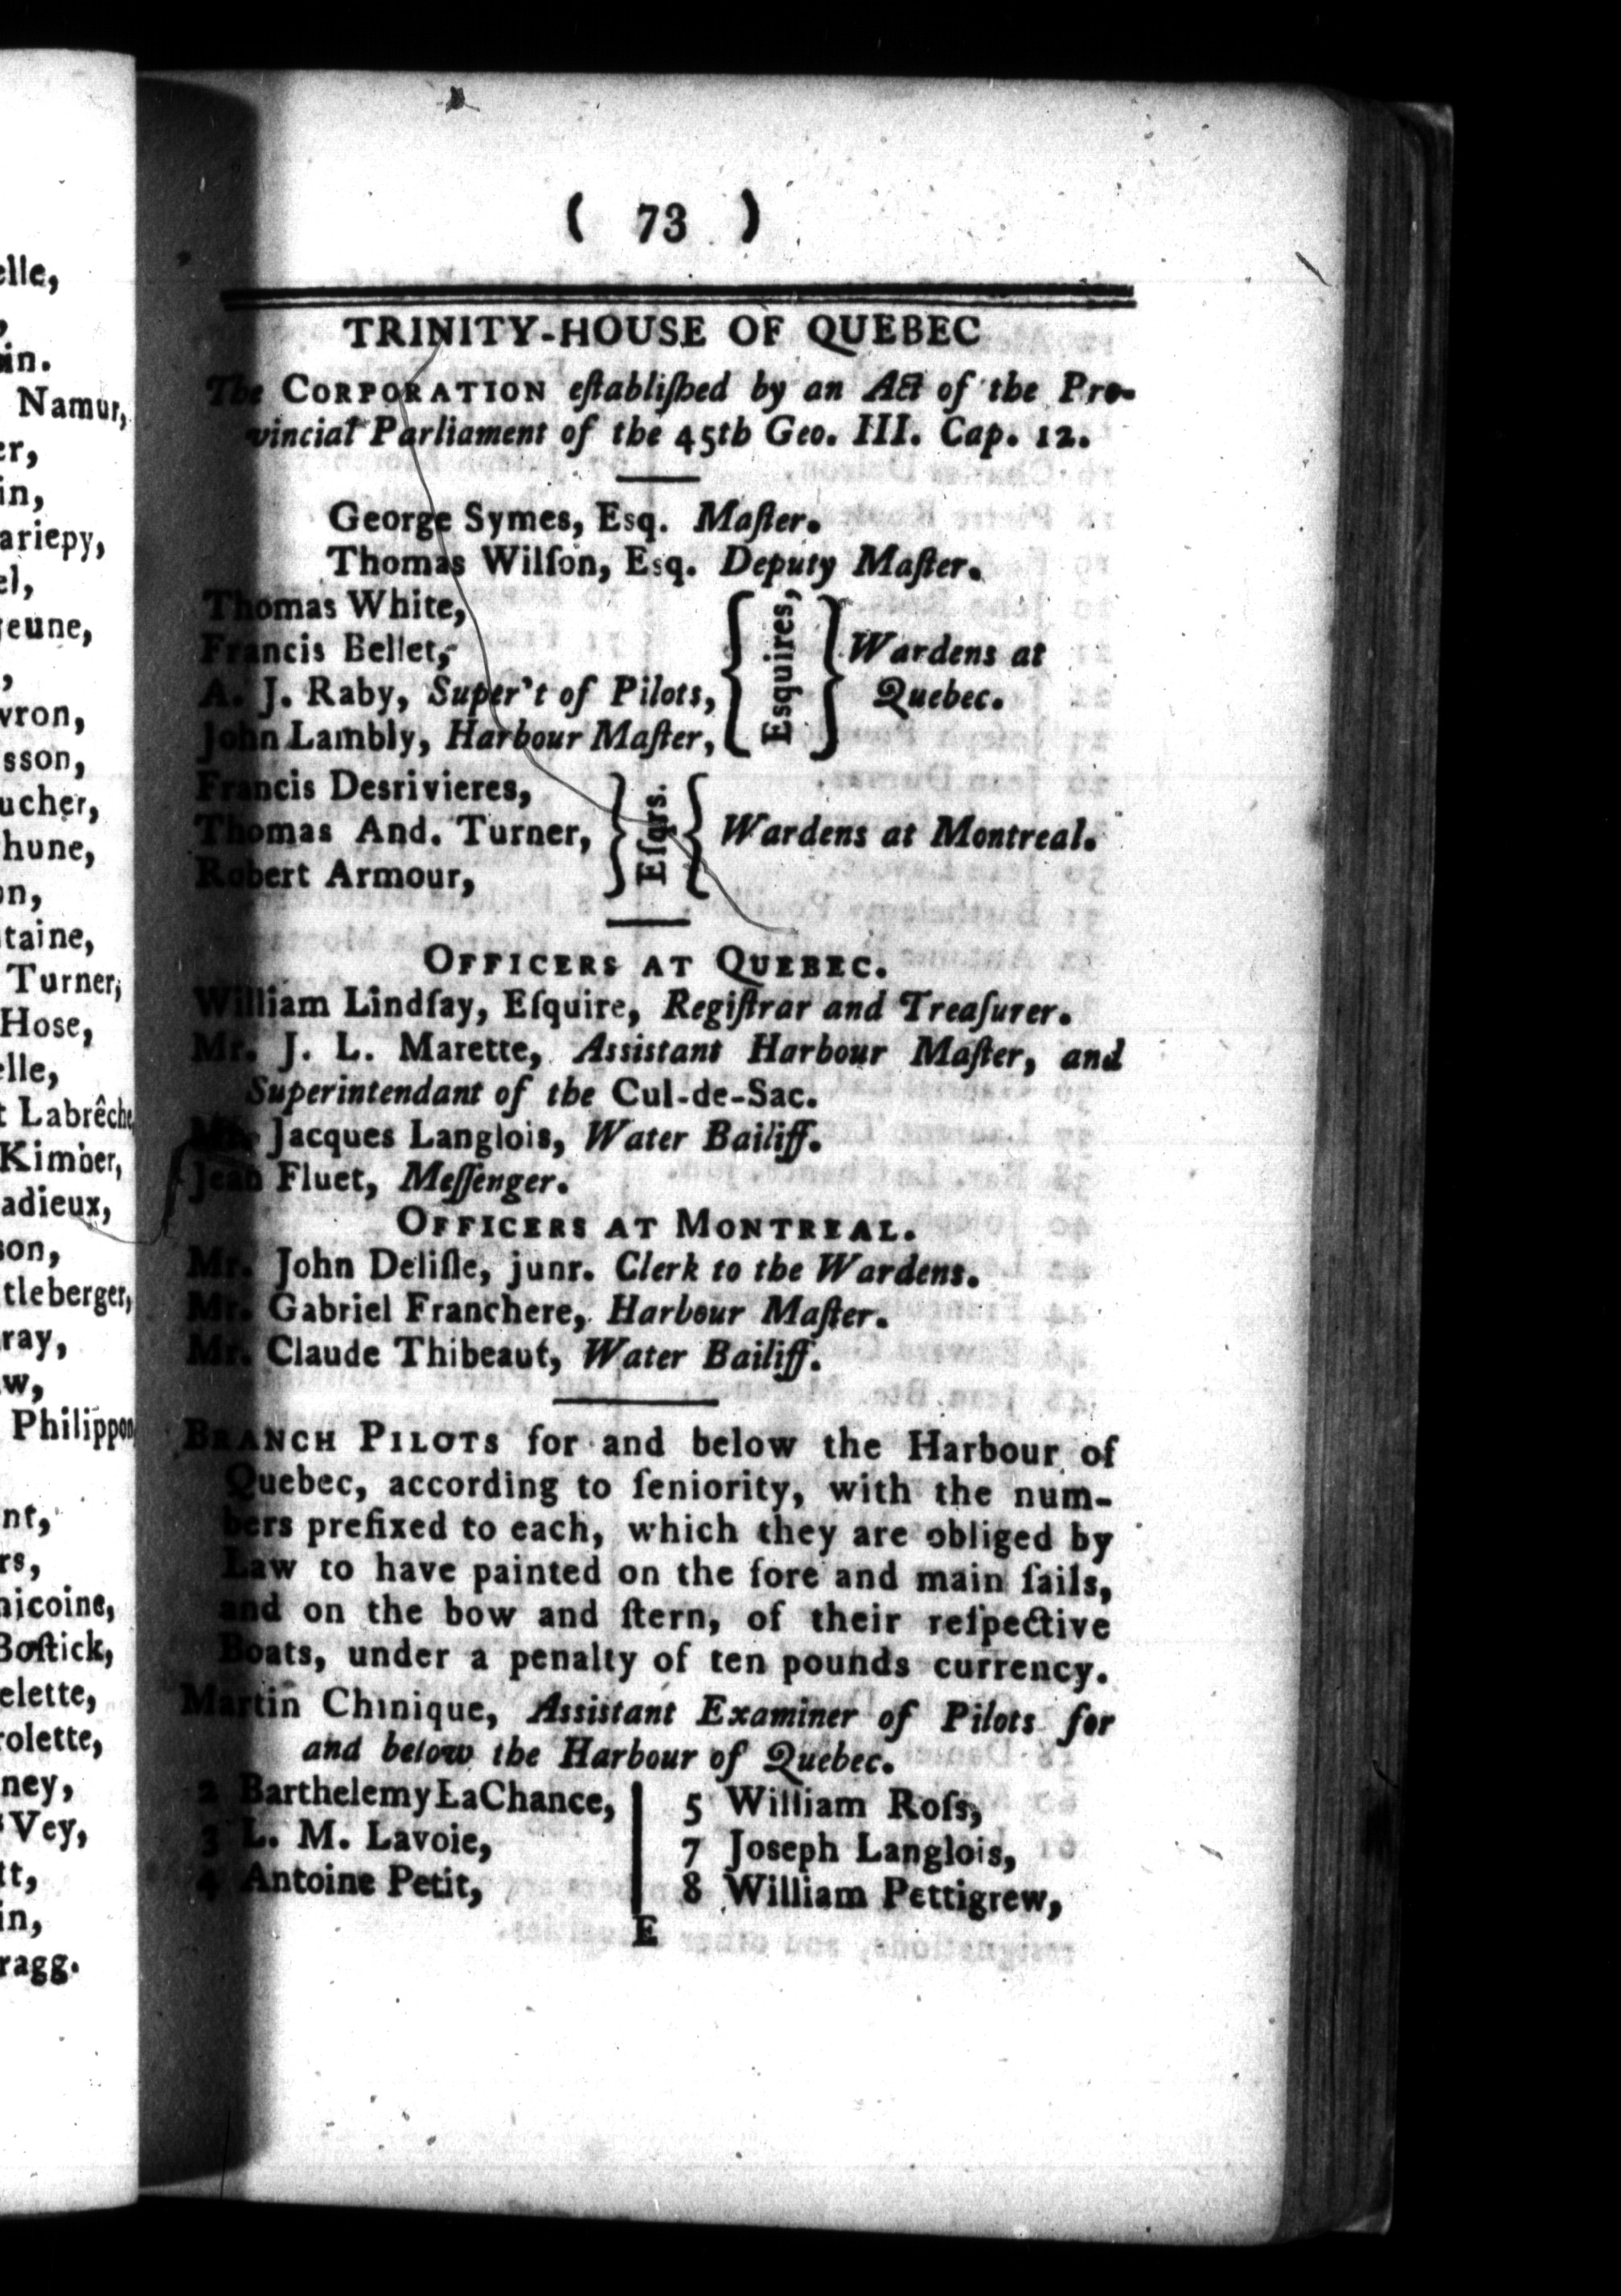 elle,
in.
Namur,
er,
in,
ariepy,
el,
jeune,
vron,
sson,
ucher,
hune,
on,
taine,
Turner,
Hose,
elle,
t Labrêche,
Kimber,
adieux,
son,
tleberger,
ray,
w,
Philippon,
nt,
rs,
nicoine,
Boſtick,
elette,
rolette,
ney,
Vey,
tt,
in,
ragg.
( 73 )
TRINITY-HOUSE OF QUEBEC
The CORPORATION eſtabliſhed by an Act of the Pro-
vincial Parliament of the 45th Geo. III. Cap. 12.
George Symes, Esq. Maſter.
Thomas Wilſon, Esq. Deputy Maſter.
Thomas White,
Francis Bellet,
A. J. Raby, Super't of Pilots,
John Lambly, Harbour Maſter,
Esquires,
Wardens at
Quebec.
Francis Desrivieres,
Thomas And. Turner,
Robert Armour,
Eſqrs.
Wardens at Montreal.
OFFICERS AT QUEBEC.
William Lindſay, Eſquire, Regiſtrar and Treaſurer.
Mr. J. L. Marette, Assistant Harbour Maſter, and
Superintendant of the Cul-de-Sac.
Mr. Jacques Langlois, Water Bailiff.
Jean Fluet, Meſſenger.
OFFICERS AT MONTREAL.
Mr. John Deliſle, junr. Clerk to the Wardens.
Mr. Gabriel Franchere, Harbour Maſter.
Mr. Claude Thibeaut, Water Bailiff.
BRANCH PILOTS for and below the Harbour of
Quebec, according to ſeniority, with the num-
bers prefixed to each, which they are obliged by
Law to have painted on the fore and main ſails,
and on the bow and ſtern, of their reſpective
Boats, under a penalty of ten pounds currency.
Martin Chinique, Assistant Examiner of Pilots for
and below the Harbour of Quebec.
2 Barthelemy LaChance,
3 L. M. Lavoie,
4 Antoine Petit,
5 William Roſs,
7 Joseph Langlois,
8 William Pettigrew,
E